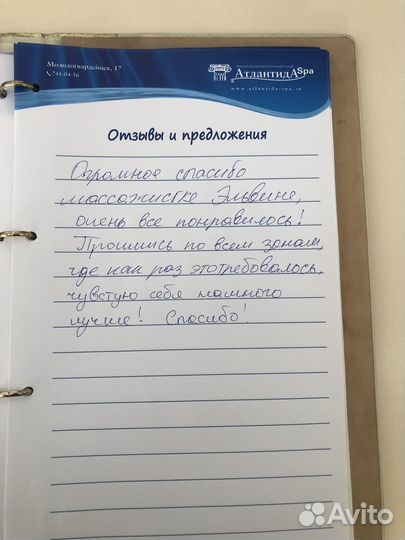 Молодогвардейцев, 17
741-04-56
АтлантидАSpa
www.atlantida-spa.ru
Отзывы и предложения
Огромное спасибо
массажистке Эльвине,
очень все понравилось!
Прошлись по всем зонам,
где как раз этотребовалось,
чувстую себя намного
лучше! Спасибо!
Avito